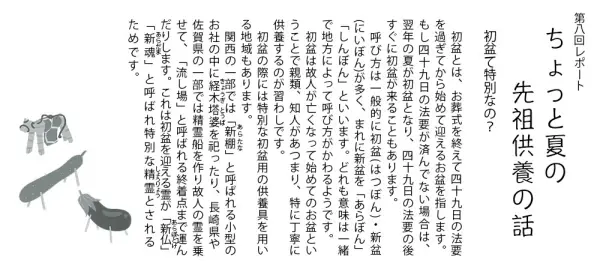 第八回レポート
ちょっと夏の
先祖供養の話
初盆て特別なの？
初盆とは、お葬式を終えて四十九日の法要
を過ぎてから始めて迎えるお盆を指します。
もし四十九日の法要が済んでない場合は、
翌年の夏が初盆となり、四十九日の法要の後
すぐに初盆が来ることもあります。
呼び方は一般的に初盆(はつぼん)・新盆
(にいぼん)が多く、まれに新盆を「あらぼん」
「しんぼん」といいます。どれも意味は一緒
で地方によって呼び方がかわるようです。
初盆は故人が亡くなって始めてのお盆とい
うことで親類、知人があつまり、特に丁寧に
供養するのが習わしです。
初盆の際には特別な初盆用の供養具を用い
る地域もあります。
関西の一部では「新棚」と呼ばれる小型の
お社の中に経木塔婆を祀ったり、長崎県や
佐賀県の一部では精霊船を作り故人の霊を乗
せて、「流し場」と呼ばれる終着点まで運ん
だりします。これは初盆を迎える霊が「新仏」
「新魂」と呼ばれ特別な精霊とされる
ためです。